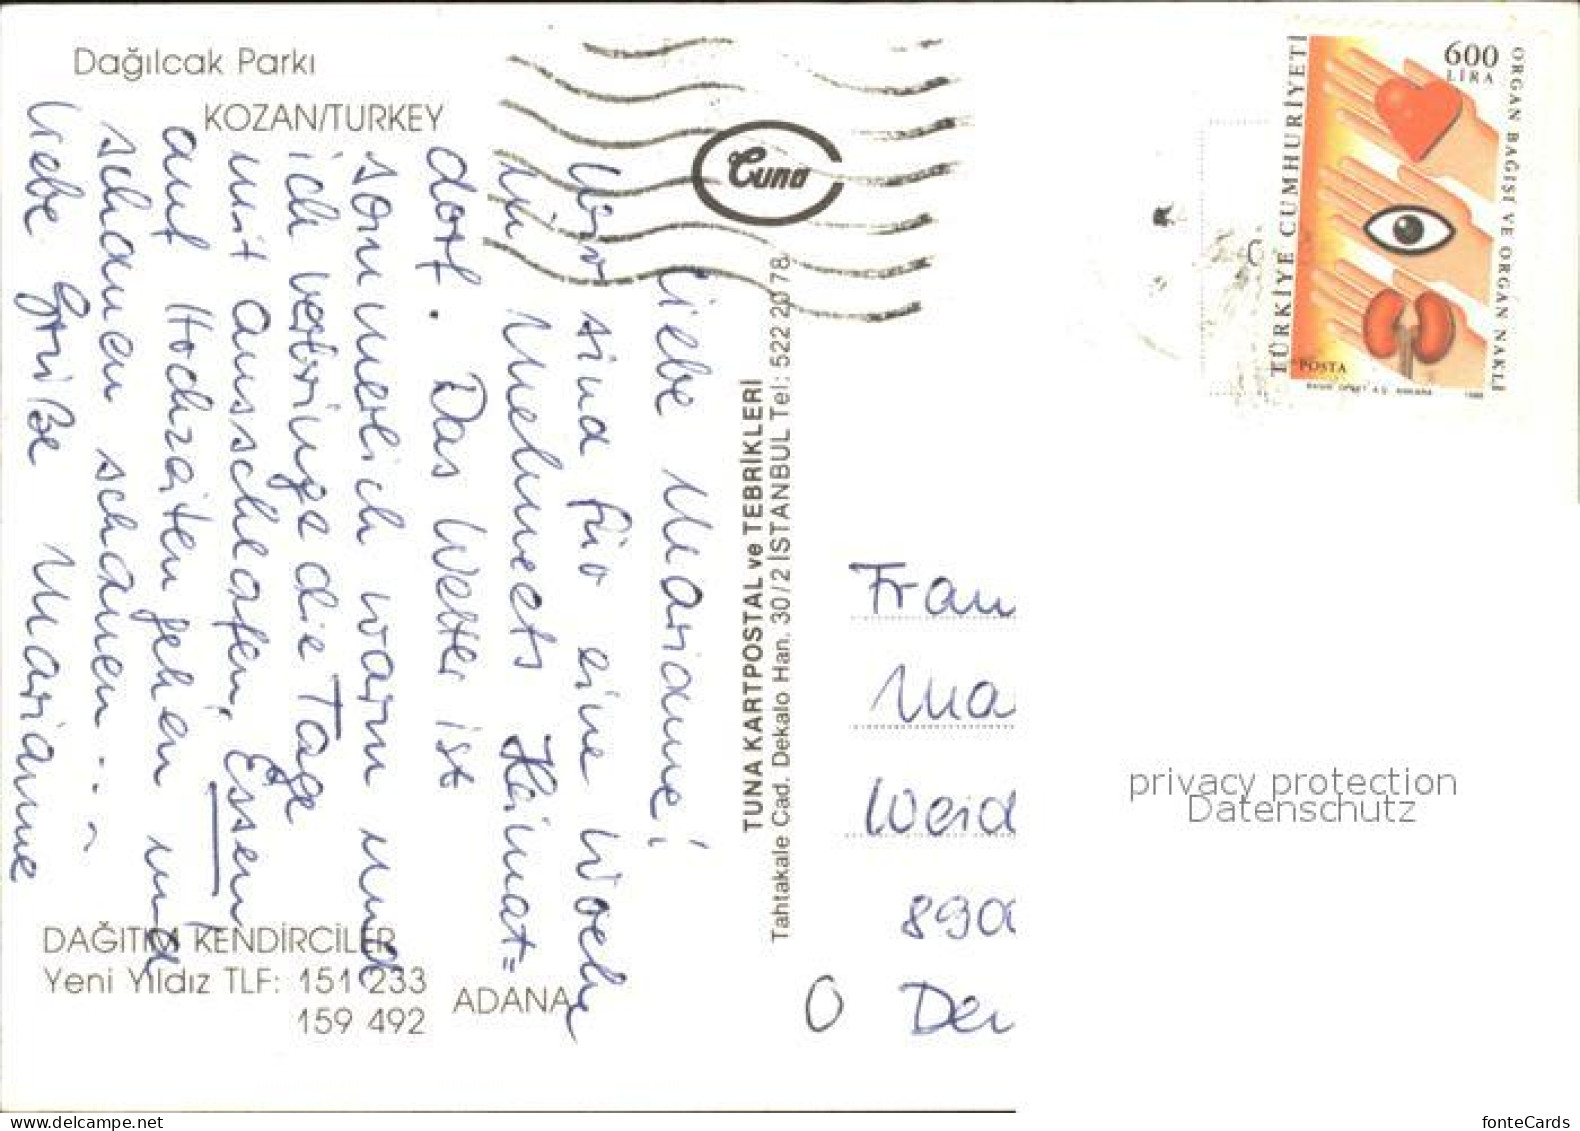 Dağılcak Parkı
KOZAN/TURKEY
Liebe Marianne!
Wir sind für eine Woche
in Mehmets Heimat=
dorf. Das Wetter ist
sommerlich warm und
ich verbringe die Tage
mit ausschlafen, Essen,
auf Hochzeiten gehen und
schauen schauen...
Liebe Grüße Marianne
DAĞITIM KENDİRCİLER
Yeni Yıldız TLF: 151 233
159 492
ADANA
Tuna
TUNA KARTPOSTAL ve TEBRİKLERİ
Tahtakale Cad. Dekalo Han. 30/2 İSTANBUL Tel: 522 20 78
TÜRKİYE CUMHURİYETİ
600
LİRA
ORGAN BAĞIŞI VE ORGAN NAKLİ
POSTA
Frau
Ma
Weid
890
0
privacy protection
Datenschutz
fonteCards